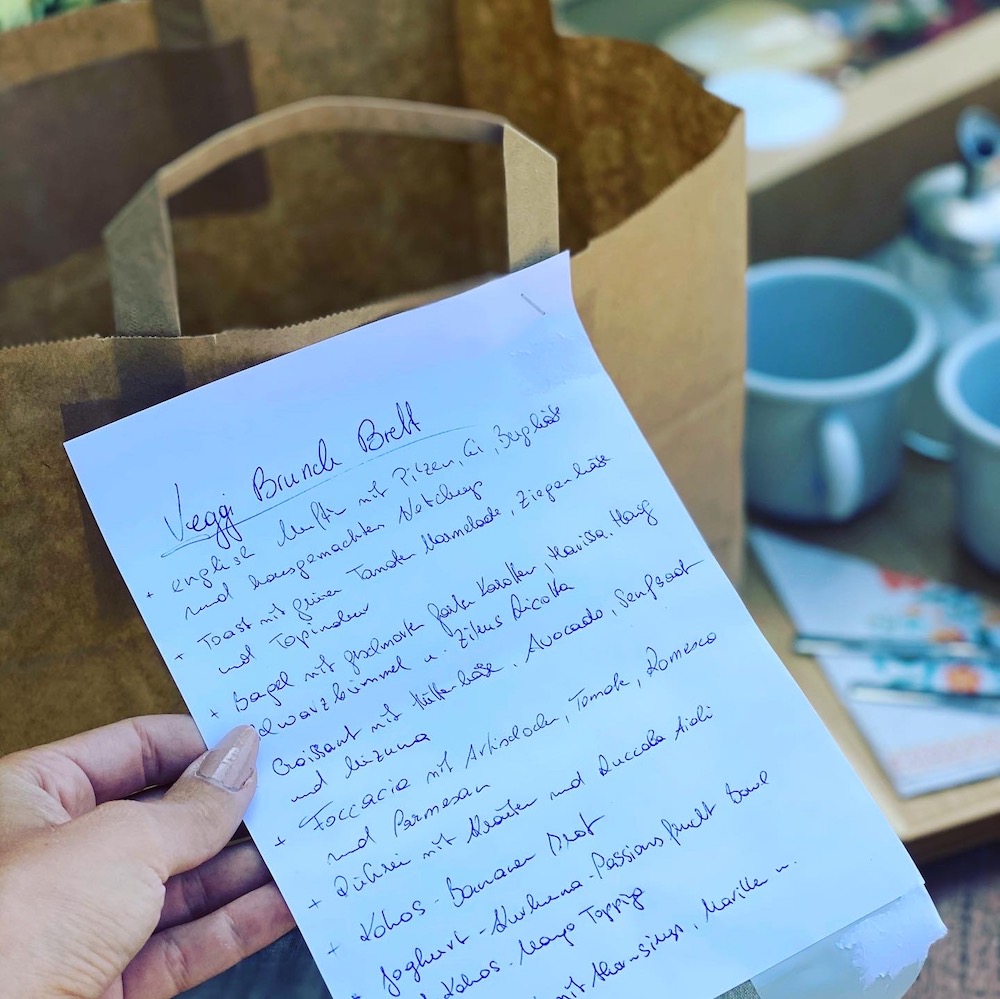 Veggi Brunch Brett
+ english Muffin mit Pilzen, Ei, Bergkäse
und hausgemachten Ketchup
+ Toast mit grüner Tomaten Marmelade, Ziegenkäse
und Topinambur
+ Bagel mit geschmorte Karotten, Harissa, Honig
Schwarzkümmel u. Zitrus Ricotta
Croissant mit Hüttenkäse, Avocado, Senfsaat
und Mizuna
+ Foccacia mit Artischocke, Tomate, Romesco
und Parmesan
+ Rührei mit Kräuter und Ruccola Aioli
+ Kokos-Bananen Brot
+ Joghurt-Kurkuma-Passionsfrucht Bowl
Kokos-Mango Topping
mit Marille u.